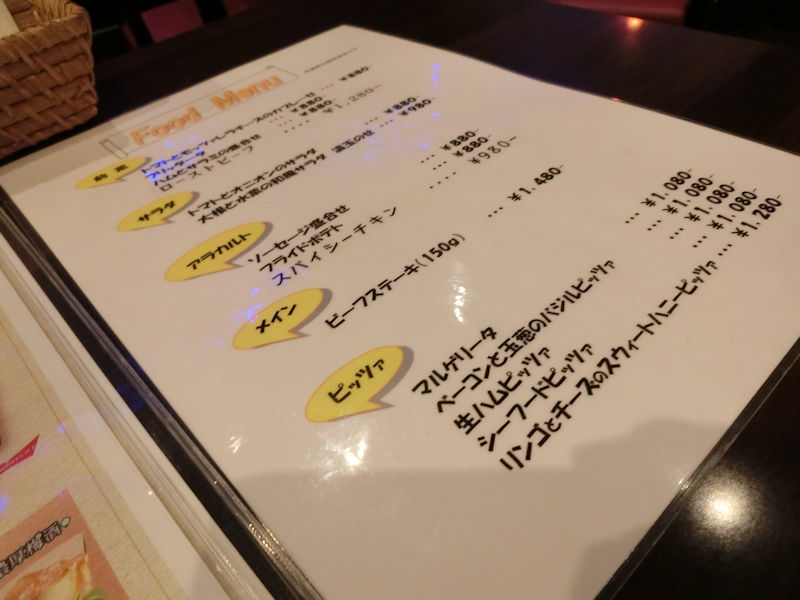 Food Menu
前菜
トマトとモッツァレラチーズのカプレーゼ ... ¥880-
フリッタータ ... ¥880-
ハムとサラミの盛合せ ... ¥880-
ローストビーフ .... ¥1,280-
サラダ
トマトとオニオンのサラダ ... ¥880-
大根と水菜の和風サラダ ... ¥980-
アラカルト
ソーセージ盛合せ ... ¥880-
フライドポテト ... ¥880-
スパイシーチキン .... ¥980-
メイン
ビーフステーキ(150g) ... ¥1,480-
ピッツァ
マルゲリータ ... ¥1,080-
ベーコンと玉葱のバジルピッツァ ... ¥1,080-
生ハムピッツァ ... ¥1,080-
シーフードピッツァ ... ¥1,080-
リンゴとチーズのスウィートハニーピッツァ ... ¥1,280-